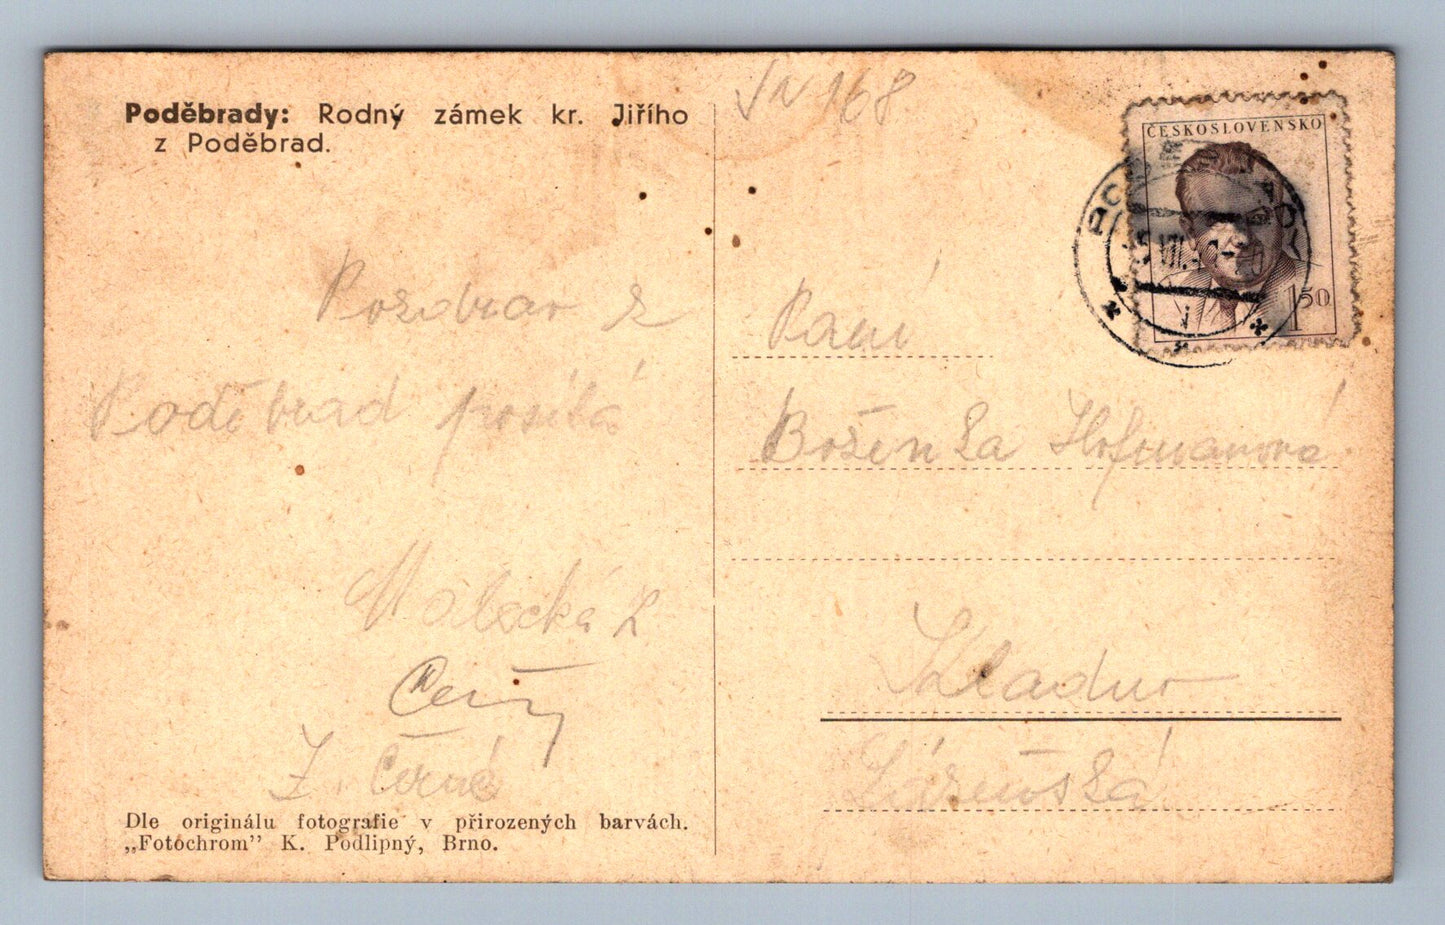 Poděbrady: Rodný zámek kr. Jiřího
z Poděbrad.
Pozdrav z
Poděbrad posílá
Malecká Z
Černý
Z. Černá
Dle originálu fotografie v přirozených barvách.
„Fotochrom” K. Podlipný, Brno.
168
ČESKOSLOVENSKO
1 50
VII.
Paní
Boženka Hofmanová
Kladno